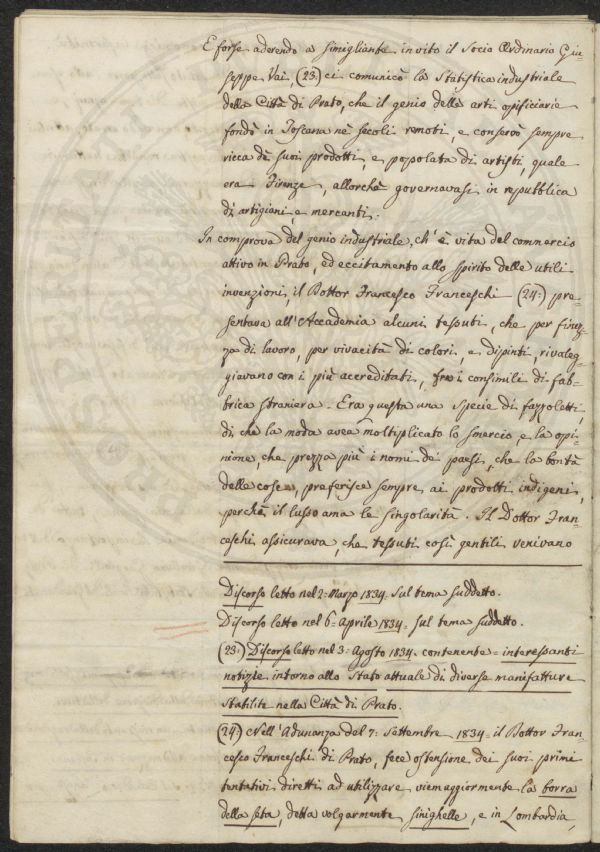 E forse aderendo a simigliante invito il Socio Ordinario Giu-
seppe Vai, (23:) ci comunicò la Statistica industriale
della Città di Prato, che il genio delle arti opificiarie
fondò in Toscana nè secoli remoti, e conservò sempre
ricca dè suoi prodotti, e popolata di artisti, quale
era Firenze, allorchè governavasi in repubblica
di artigiani, e mercanti:
In comprova del genio industriale, ch'è vita del commercio
attivo in Prato, ed eccitamento allo spirito delle utili
invenzioni, il Dottor Francesco Franceschi (24:) pre-
sentava all'Accademia alcuni tessuti, che per finez-
za di lavoro, per vivacità di colori, e dipinti, rivaleg-
giavano con i più accreditati, fra i consimili di fab-
brica straniera. Era questa una specie di fazzoletti,
di che la moda avea moltiplicato lo smercio, e la opi-
nione, che prezza più i nomi dei paesi, che la bontà
delle cose, preferisce sempre ai prodotti indigeni,
perchè il lusso ama le singolarità. Il Dottor Fran-
ceschi assicurava, che tessuti così gentili venivano
Discorso letto nel 2: Marzo 1834. sul tema suddetto.
Discorso letto nel 6: Aprile 1834: sul tema suddetto.
(23:) Discorso letto nel 3: Agosto 1834. contenente = interessanti
notizie intorno allo stato attuale di diverse manifatture
stabilite nella Città di Prato.
(24) Nell'Adunanza del 7: Settembre 1834 = il Dottor Fran-
cesco Franceschi di Prato, fece ostensione dei suoi primi
tentativi diretti ad utilizzare viemaggiormente la borra
della seta, detta volgarmente sinighelle, e in Lombardia,